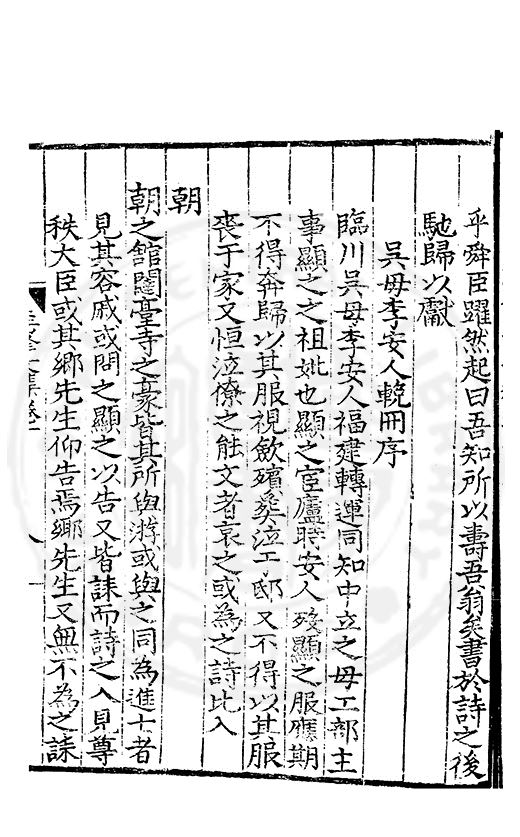 乎舜臣躍然起曰吾知所以壽吾翁矣書於詩之後
馳歸以獻
吳母李安人輓冊序
臨川吳母李安人福建轉運同知中立之母工部主
事顯之之祖妣也顯之宦廬時安人歿顯之服應期
不得奔歸以其服視歛殯奠泣于邸又不得以其服
喪于家又恒泣僚之能文者哀之或為之詩比入
朝
朝之館閣臺寺之豪皆其所與游或與之同為進士者
見其容戚或問之顯之以告又皆誄而詩之入見尊
秩大臣或其鄉先生仰告焉鄉先生又無不為之誄
八